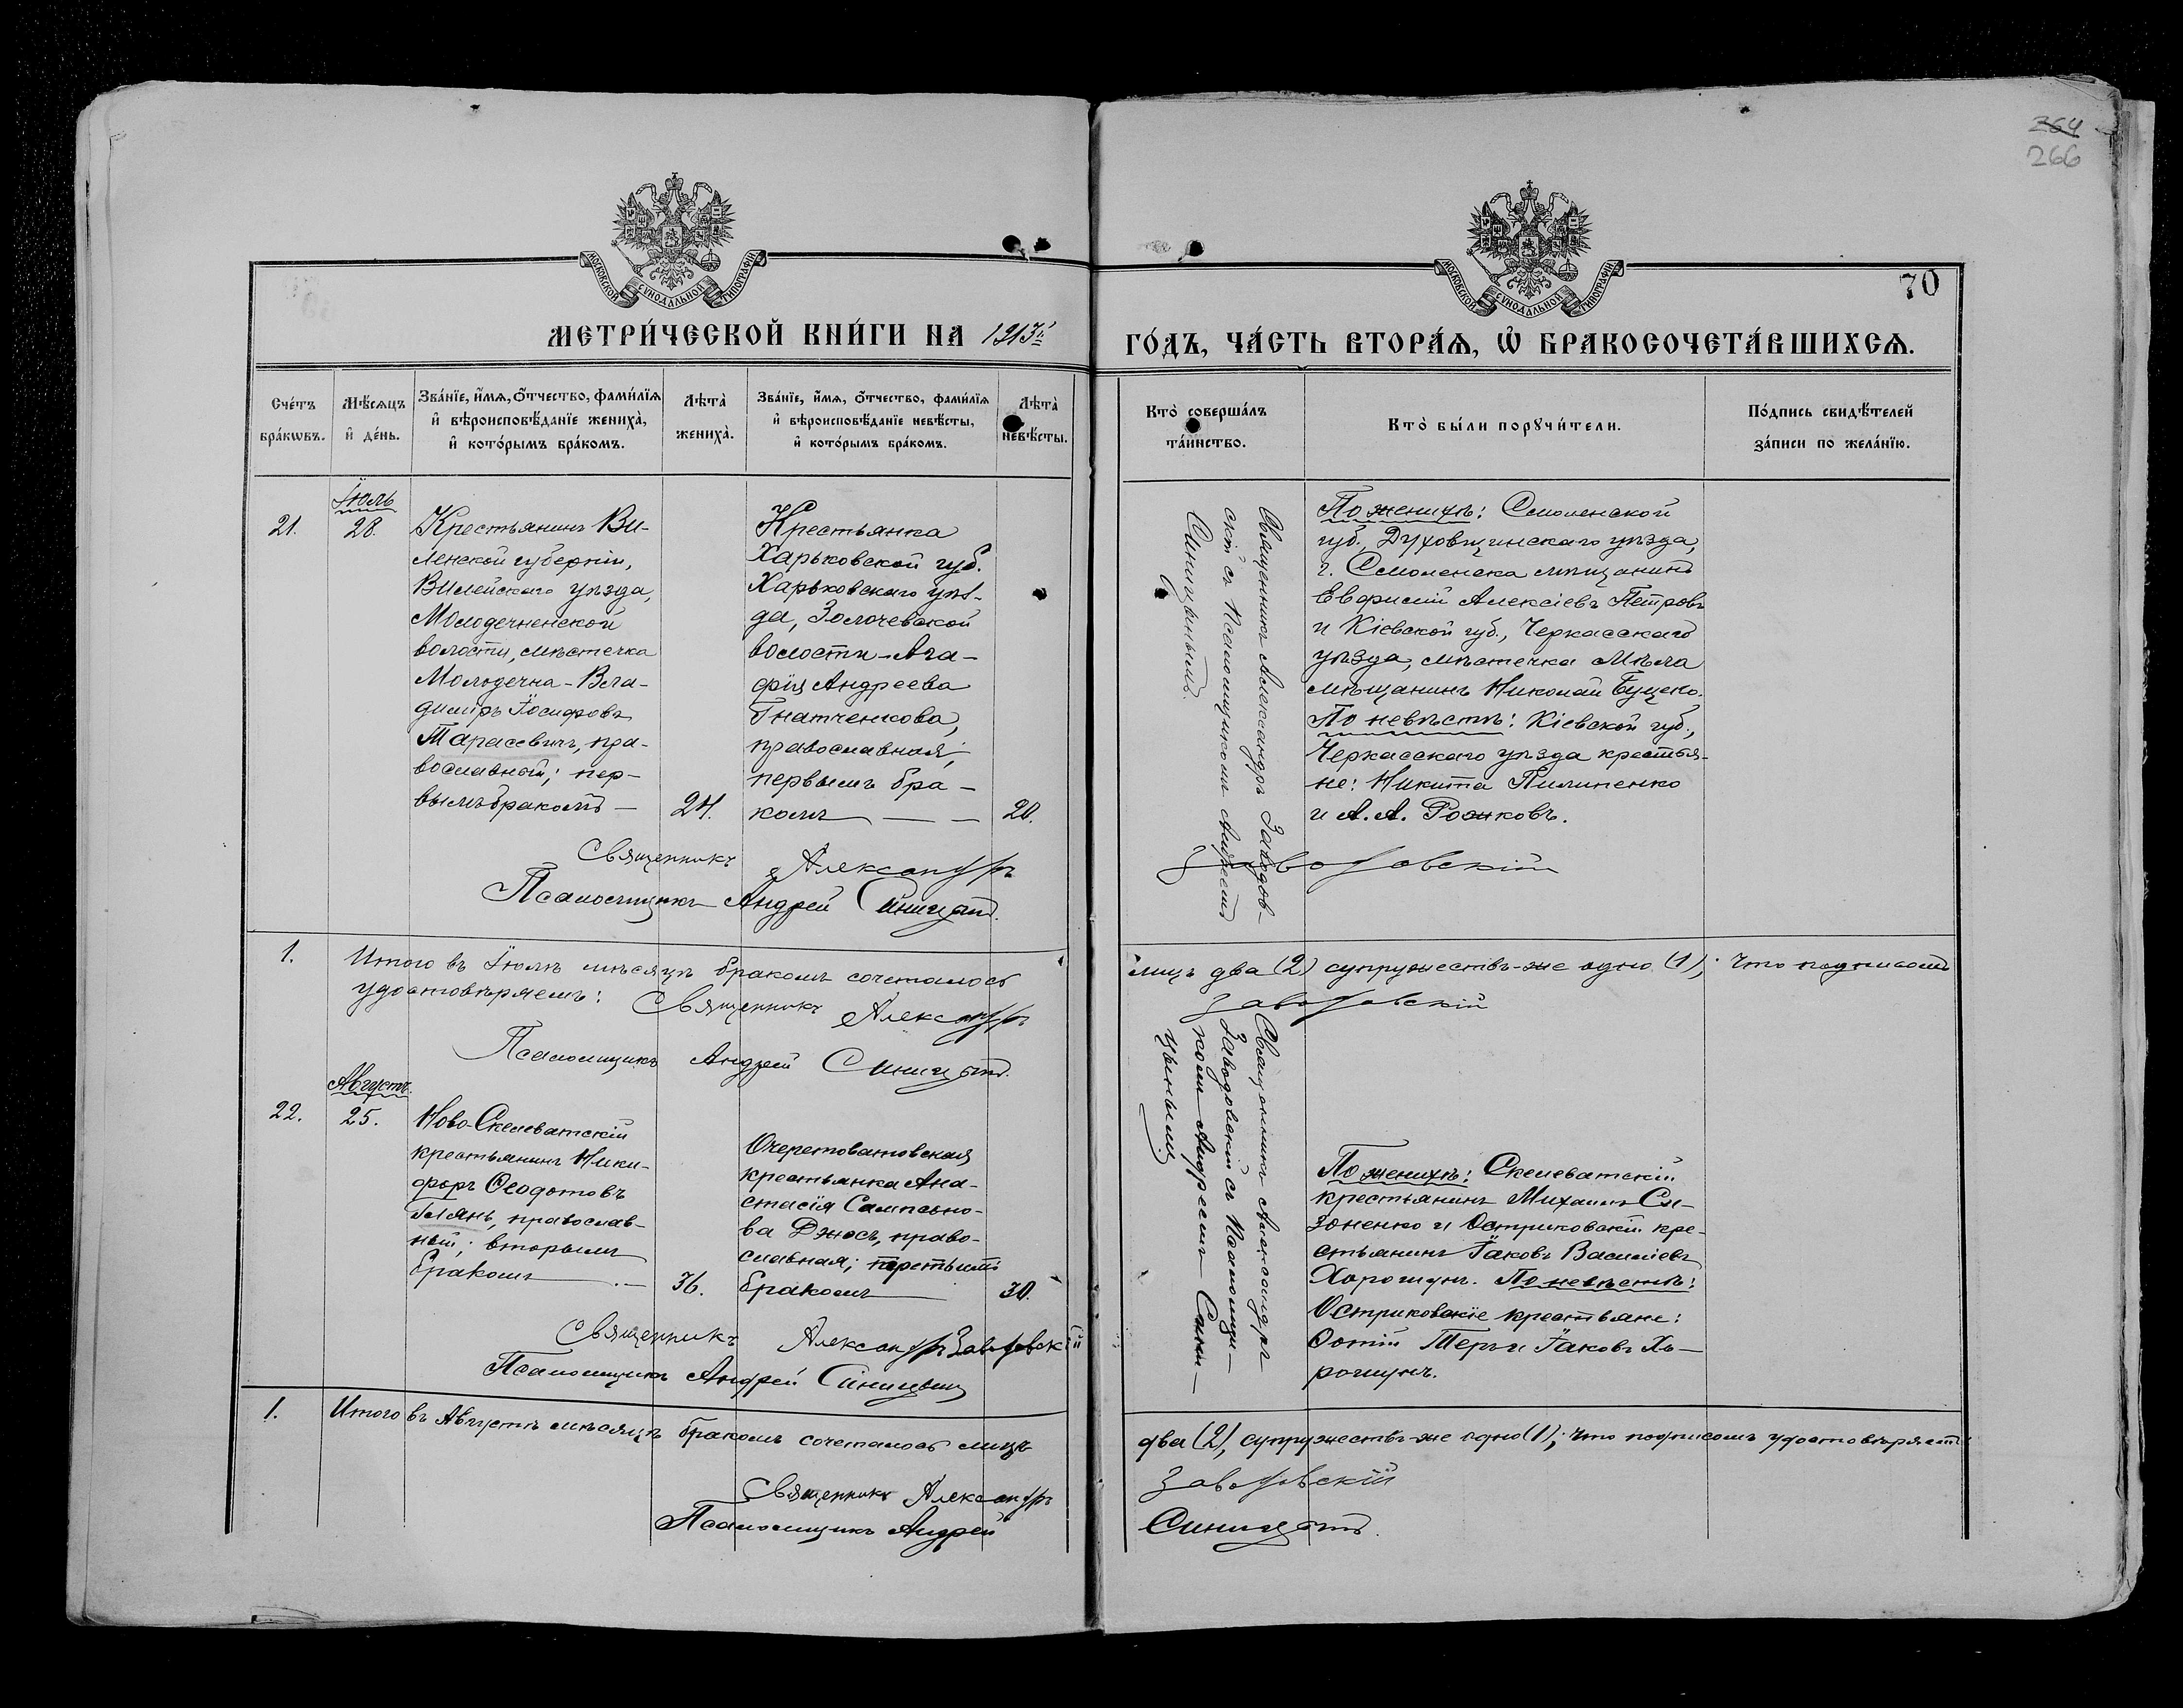 264
266
МОСКОВСКОЙ СѴНОДАЛЬНОЙ ТИПОГРАФІИ
МОСКОВСКОЙ СѴНОДАЛЬНОЙ ТИПОГРАФІИ
70
МЕТРИ́ЧЕСКОЙ КНИ́ГИ НА 1913й
ГО́ДЪ, ЧА́СТЬ ВТОРА́Ѧ, Ѡ҆ БРАКОСОЧЕТА́ВШИХСѦ.
Сче́тъ
бра́кωвъ.
Мѣ́сѧцъ
и҆ де́нь.
Зва́нїе, и҆́мѧ, о҆́тчество, фами́лїѧ
и҆ вѣроисповѣ́данїе жениха̀,
и҆ кото́рымъ бра́комъ.
Лѣта̀
жениха̀.
Зва́нїе, и҆́мѧ, о҆́тчество, фами́лїѧ
и҆ вѣроисповѣ́данїе невѣ́сты,
и҆ кото́рымъ бра́комъ.
Лѣта̀
невѣ́сты.
Кто̀ соверша́лъ
та́инство.
Кто̀ бы́ли порꙋчи́тели.
По́дпись свидѣ́телей
за́писи по жела́нїю.
21.
Іюль
28.
Крестьянинъ Ви-
ленской губерніи,
Вилейскаго уѣзда,
Молодечненской
волости, мѣстечка
Молодечна - Вла-
димиръ Іосифовъ
Тарасевичъ, пра-
вославный; пер-
вымъ бракомъ —
24.
Крестьянка
Харьковской губ.
Харьковскаго уѣз-
да, Золочевской
волости - Ага-
фія Андреева
Гнатченкова,
православная;
первымъ бра -
комъ — —
20.
Священникъ Александръ
Заводов-
скій съ Псаломщикомъ Андреемъ
Синицынымъ.
По женихѣ: Смоленской
губ., Духовщинскаго уѣзда,
г. Смоленска мѣщанинъ
Алексіевъ Петровъ
и Кіевской губ., Черкасскаго
уѣзда, мѣстечка Мѣла
мѣщанинъ Николай
По невѣстѣ: Кіевской губ.,
Черкасскаго уѣзда крестья-
не: Никита Пилипенко
и А. А.
Священникъ Александръ Заводовскій
Псаломщикъ Андрей Синицынъ.
1.
Итого въ Іюлѣ мѣсяцѣ бракомъ сочеталось лицъ два (2) супружествъ-же одно (1); что подписомъ
удостовѣряемъ: Священникъ Александръ Заводовскій
Псаломщикъ Андрей Синицынъ.
22.
Августъ.
25.
Ново-Скелеватскій
крестьянинъ Ники-
форъ Ѳеодотовъ
православ-
ный; вторымъ
бракомъ —
36.
Очеретоватовская
крестьянка Ана-
стасія Сампсоно-
ва Джосъ, право-
славная; третьимъ
бракомъ —
30.
Священникъ Александръ
Заводовскій съ Псаломщи-
комъ Андреемъ Сини-
цынымъ.
По женихѣ: Скелеватскій
крестьянинъ Михаилъ Си-
зоненко и Остриковскій кре-
стьянинъ Іаковъ Василіевъ
Хорошунъ. По невѣстѣ:
Остриковскіе крестьяне:
Ѳотій и Іаковъ Хо-
рошунъ.
Священникъ Александръ Заводовскій
Псаломщикъ Андрей Синицынъ
1.
Итого въ Августѣ мѣсяцѣ бракомъ сочеталось лицъ два (2), супружествъ-же одно (1); что подписомъ удостовѣряемъ:
Священникъ Александръ Заводовскій
Псаломщикъ Андрей Синицынъ.